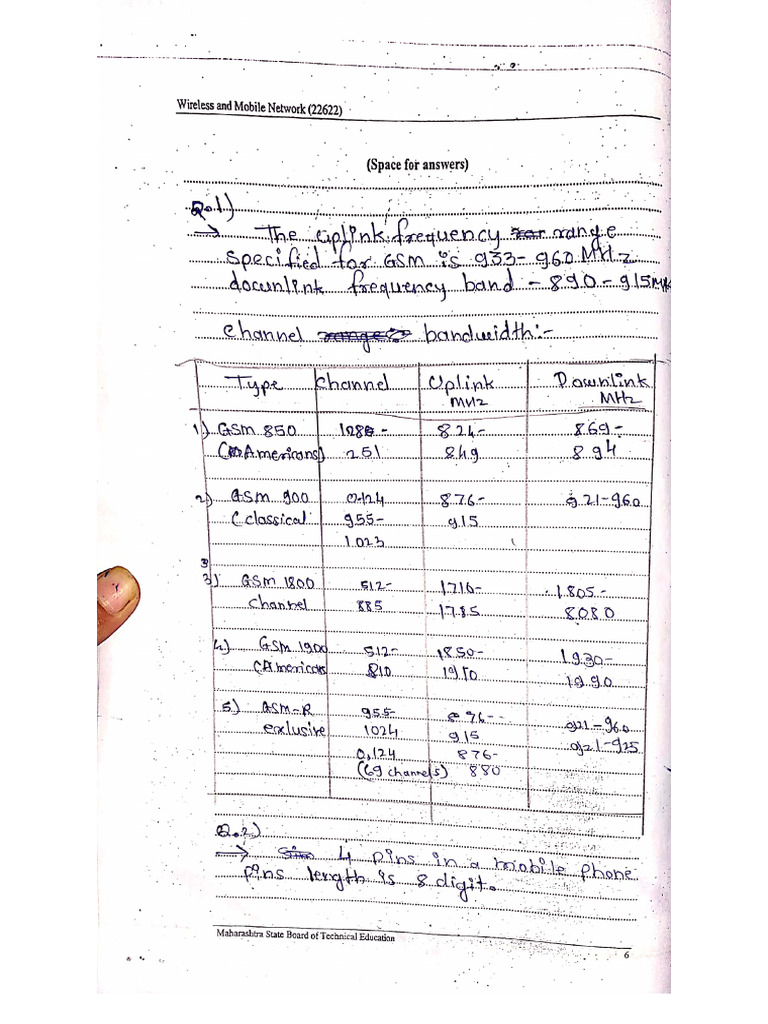 Wireless and Mobile Network (22622)
(Space for answers)
Q.1)
→ The Uplink frequency range
specified for GSM is 933-960 MHz
downlink frequency band - 890-915 MHz
channel bandwidth:-
Type Channel Uplink MHz Downlink MHz
1) GSM 850 128- 824- 869-
(Americans) 251 849 894
2) GSM 900 0-124 876- 921-960
(classical 955- 915
1023
3
3) GSM 1800 512- 1710- 1.805-
channel 885 1785 8080
4) GSM 1900 512- 1850- 1930-
(Americas 810 1910 1990
5) GSM-R 955- 876- 921-960
exlusive 1024 915 921-925
0,124 876-
(69 channels) 880
Q.2)
→ 4 pins in a mobile phone
pins length is 8 digit.
Maharashtra State Board of Technical Education
6